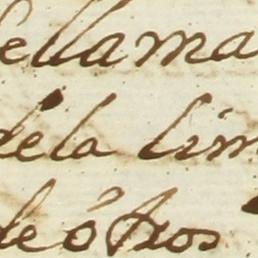 ella ma
dela lim
de ótros